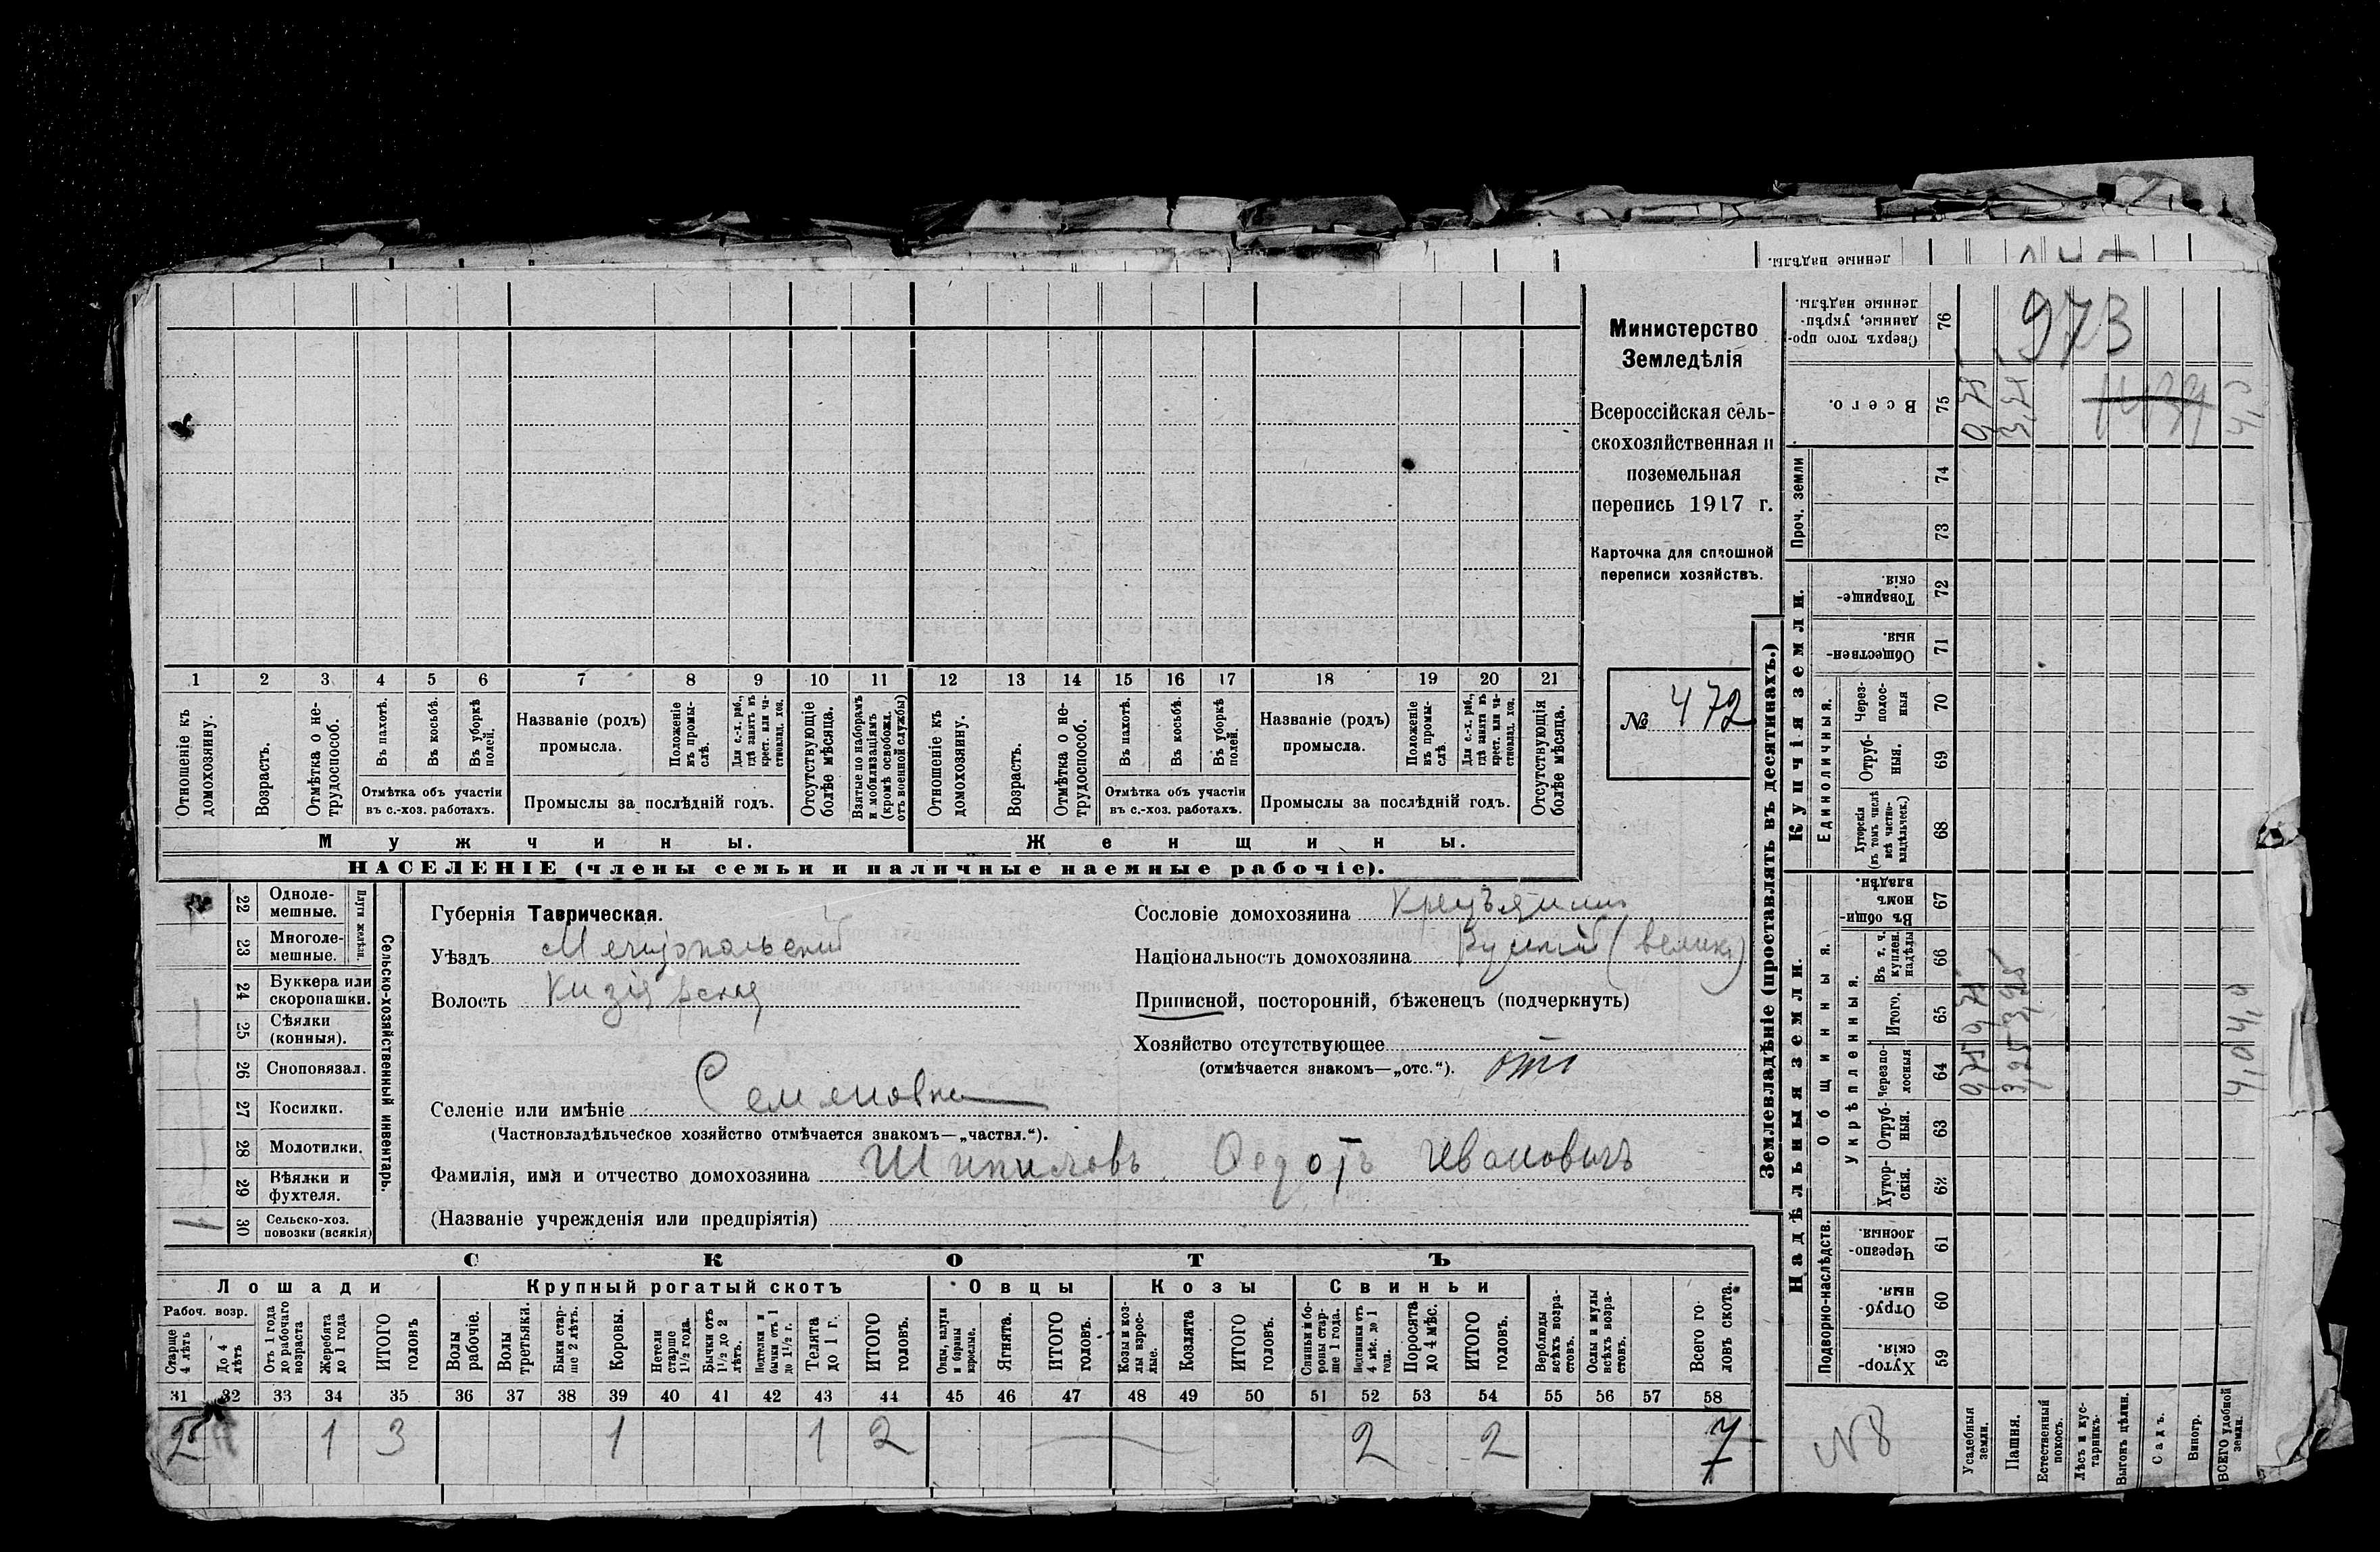 Министерство
Земледѣлія
Всероссійская сель-
скохозяйственная и
поземельная
перепись 1917 г.
Карточка для сплошной
переписи хозяйствъ.
№ 472
1 2 3 4 5 6 7 8 9 10 11 12 13 14 15 16 17 18 19 20 21
Отношеніе къ домохозяину.
Возрастъ.
Отмѣтка о не-трудоспособ.
Въ пахотѣ.
Въ косьбѣ.
Въ уборкѣ полей.
Отмѣтка объ участіи
въ с.-хоз. работахъ.
Названіе (родъ)
промысла.
Положеніе въ промы-слѣ.
Для с.-х. раб., гдѣ занятъ въ крест. или ча-стновлад. хоз.
Промыслы за послѣдній годъ.
Отсутствующіе болѣе мѣсяца.
Взятые по наборамъ и мобилизаціямъ (кромѣ освобожд. отъ военной службы)
Отношеніе къ домохозяину.
Возрастъ.
Отмѣтка о не-трудоспособ.
Въ пахотѣ.
Въ косьбѣ.
Въ уборкѣ полей.
Отмѣтка объ участіи
въ с.-хоз. работахъ.
Названіе (родъ)
промысла.
Положеніе въ промы-слѣ.
Для с.-х. раб., гдѣ занята въ крест. или ча-стновлад. хоз.
Промыслы за послѣдній годъ.
Отсутствующія болѣе мѣсяца.
Мужчины.
Женщины.
НАСЕЛЕНІЕ (члены семьи и наличные наемные рабочіе).
22 Одноле-мешные.
23 Многоле-мешные.
Плуги желѣзн.
24 Буккера или скоропашки.
25 Сѣялки (конныя).
26 Сноповязал.
27 Косилки.
28 Молотилки.
29 Вѣялки и фухтеля.
30 Сельско-хоз. повозки (всякія)
1
Сельско-хозяйственный инвентарь.
Губернія Таврическая.
Уѣздъ Мелитопольскій
Волость
Селеніе или имѣніе Семеновка
(Частновладѣльческое хозяйство отмѣчается знакомъ—„частвл.“).
Фамилія, имя и отчество домохозяина Шипиловъ Федотъ Ивановичъ
(Названіе учрежденія или предпріятія)
Сословіе домохозяина Крестьянинъ
Національность домохозяина Русскій (велик.)
Приписной, посторонній, бѣженецъ (подчеркнуть)
Хозяйство отсутствующее
(отмѣчается знакомъ—„отс.“). отс
СКОТЪ
Лошади
Крупный рогатый скотъ
Овцы
Козы
Свиньи
Рабоч. возр.
Старше 4 лѣтъ
До 4 лѣтъ
Отъ 1 года до рабочаго возраста
Жеребята до 1 года
ИТОГО головъ
Волы рабочіе.
Волы третьяки.
Быки стар-ше 2 лѣтъ.
Коровы.
Нетели старше 1½ года.
Бычки отъ 1½ до 2 лѣтъ.
Подтелки и бычки отъ 1 до 1½ г.
Телята до 1 г.
ИТОГО головъ.
Овцы, валухи и бараны взрослые.
Ягнята.
ИТОГО головъ.
Козы и коз-лы взрос-лые.
Козлята
ИТОГО головъ.
Свиньи и бо-ровы стар-ше 1 года.
Подсвинки отъ 4 мѣс. до 1 года.
Поросята до 4 мѣс.
ИТОГО головъ.
Верблюды всѣхъ возра-стовъ.
Ослы и мулы всѣхъ возра-стовъ.
Всего го-ловъ скота.
31 32 33 34 35 36 37 38 39 40 41 42 43 44 45 46 47 48 49 50 51 52 53 54 55 56 57 58
2 1 3 1 1 2 2 2 7
Землевладѣніе (проставлять въ десятинахъ.)
Надѣльныя земли.
Купчія земли.
Проч. земли
Подворно-наслѣдств.
Общинныя.
Укрѣпленныя.
Единоличныя.
Хутор-скія. 59
Отруб-ныя. 60
Черезпо-лосныя. 61
Хутор-скія. 62
Отруб-ныя. 63
Черезпо-лосныя 64
Итого. 65
Въ т. ч. куплен. надѣлы 66
Въ общи-номъ владѣн. 67
Хуторскія (въ томъ числѣ всѣ частно-владѣльческ.) 68
Отруб-ныя. 69
Через-полос-ныя 70
Обществен-ныя. 71
Товарище-скія. 72
73
74
Всего. 75
Сверхъ того про-данные, укрѣп-ленные надѣлы. 76
ленные надѣлы.
973
1439
№8
Усадебныя земли.
Пашня.
Естественный покосъ.
Лѣсъ и кус-тарникъ.
Выгонъ цѣлин.
Садъ.
Виногр.
ВСЕГО удобной земли.